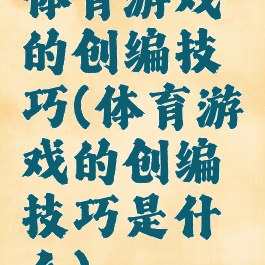 体育游戏
的创编技
巧(体育游
戏的创编
技巧是什
么)